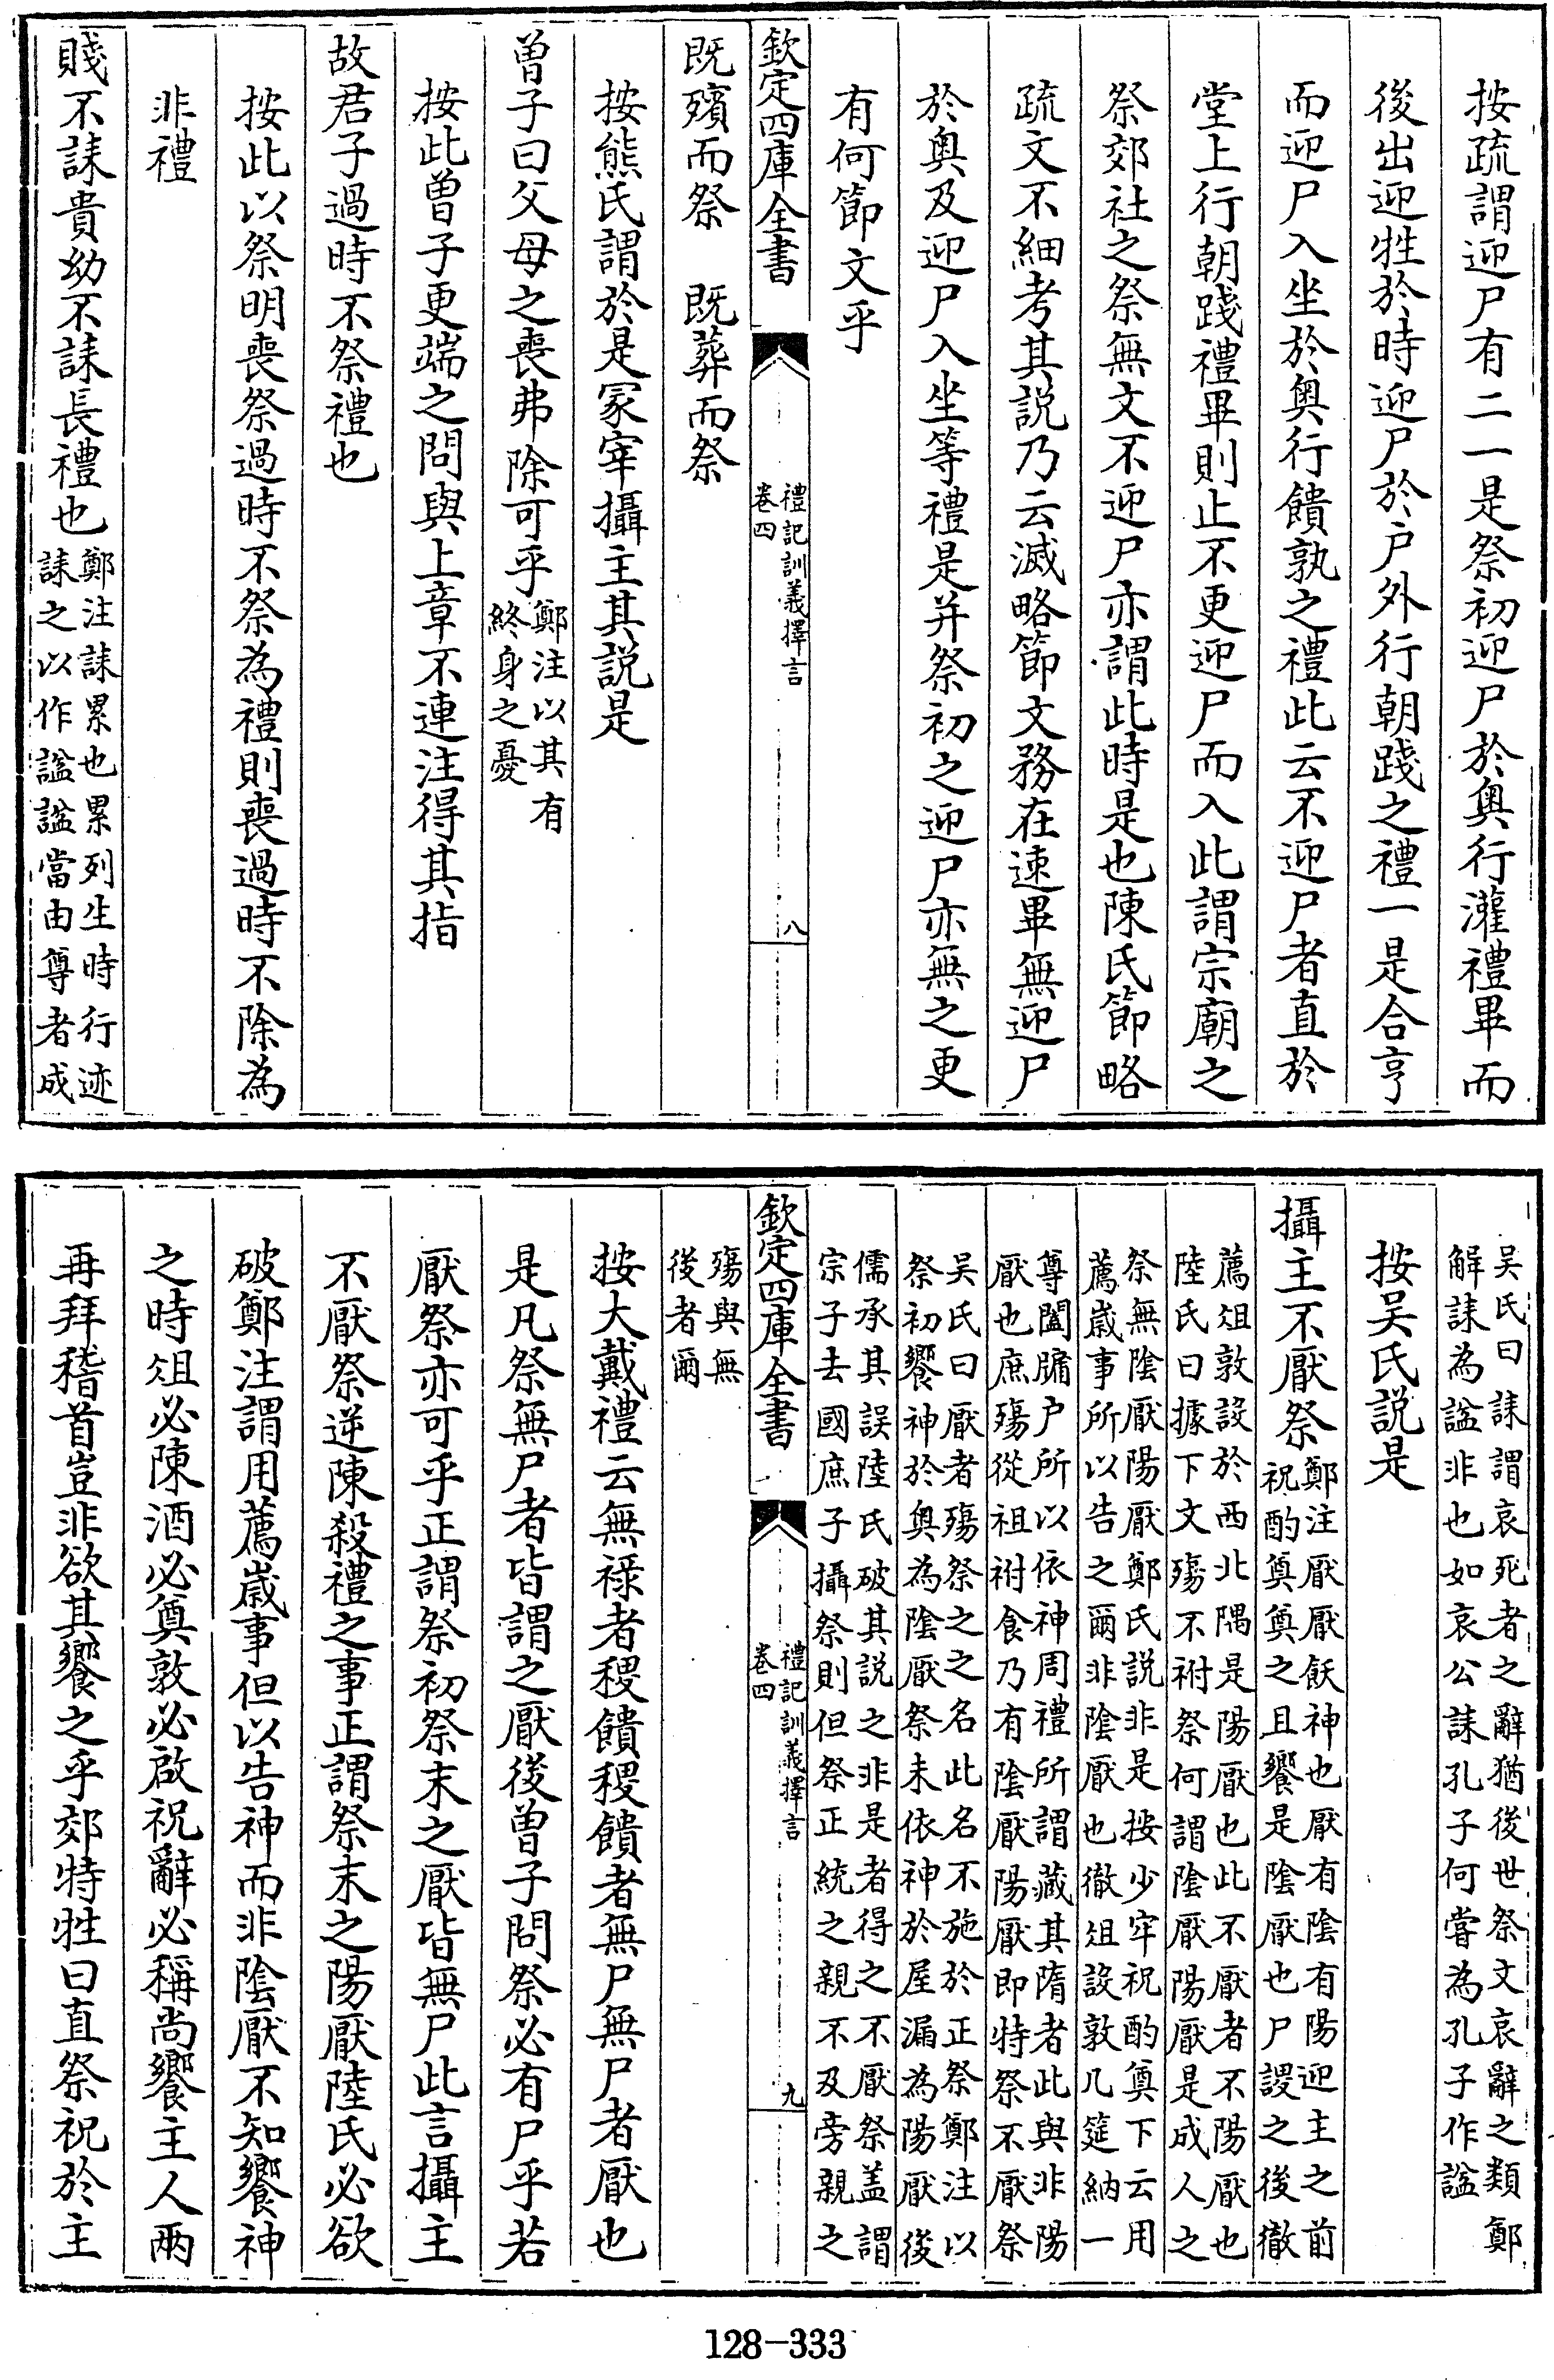 按疏謂迎尸有二一是祭初迎尸於奥行灌禮畢而
後出迎牲於時迎尸於户外行朝踐之禮一是合亨
而迎尸入坐於奥行饋孰之禮此云不迎尸者直於
堂上行朝踐禮畢則止不更迎尸而入此謂宗廟之
祭郊社之祭無文不迎尸亦謂此時是也陳氏節略
疏文不細考其説乃云滅略節文務在速畢無迎尸
於奥及迎尸入坐等禮是并祭初之迎尸亦無之更
有何節文乎
欽定四庫全書
禮記訓義擇言
卷四
八
既殯而祭　既葬而祭
按熊氏謂於是冢宰攝主其説是
曽子曰父母之喪弗除可乎
鄭注以其有
終身之憂
按此曽子更端之問與上章不連注得其指
故君子過時不祭禮也
按此以祭明喪祭過時不祭為禮則喪過時不除為
非禮
賤不誄貴幼不誄長禮也
鄭注誄累也累列生時行迹
誄之以作諡諡當由尊者成
吴氏曰誄謂哀死者之辭猶後世祭文哀辭之類鄭
解誄為諡非也如哀公誄孔子何嘗為孔子作諡
按吴氏説是
攝主不厭祭
鄭注厭厭飫神也厭有隂有陽迎主之前
祝酌奠奠之且饗是隂厭也尸謖之後徹
薦俎敦設於西北隅是陽厭也此不厭者不陽厭也
陸氏曰據下文殤不祔祭何謂隂厭陽厭是成人之
祭無隂厭陽厭鄭氏説非是按少牢祝酌奠下云用
薦嵗事所以告之爾非隂厭也徹俎設敦几筵納一
尊闔牖户所以依神周禮所謂藏其隋者此與非陽
厭也庶殤從祖祔食乃有隂厭陽厭即特祭不厭祭
吴氏曰厭者殤祭之之名此名不施於正祭鄭注以
祭初饗神於奥為隂厭祭未依神於屋漏為陽厭後
儒承其誤陸氏破其説之非是者得之不厭祭盖謂
宗子去國庶子攝祭則但祭正統之親不及旁親之
欽定四庫全書
禮記訓義擇言
卷四
九
殤與無
後者爾
按大戴禮云無禄者稷饋稷饋者無尸無尸者厭也
是凡祭無尸者皆謂之厭後曽子問祭必有尸乎若
厭祭亦可乎正謂祭初祭末之厭皆無尸此言攝主
不厭祭逆陳殺禮之事正謂祭末之陽厭陸氏必欲
破鄭注謂用薦嵗事但以告神而非隂厭不知饗神
之時俎必陳酒必奠敦必啟祝辭必稱尚饗主人兩
再拜稽首豈非欲其饗之乎郊特牲曰直祭祝於主
128-333